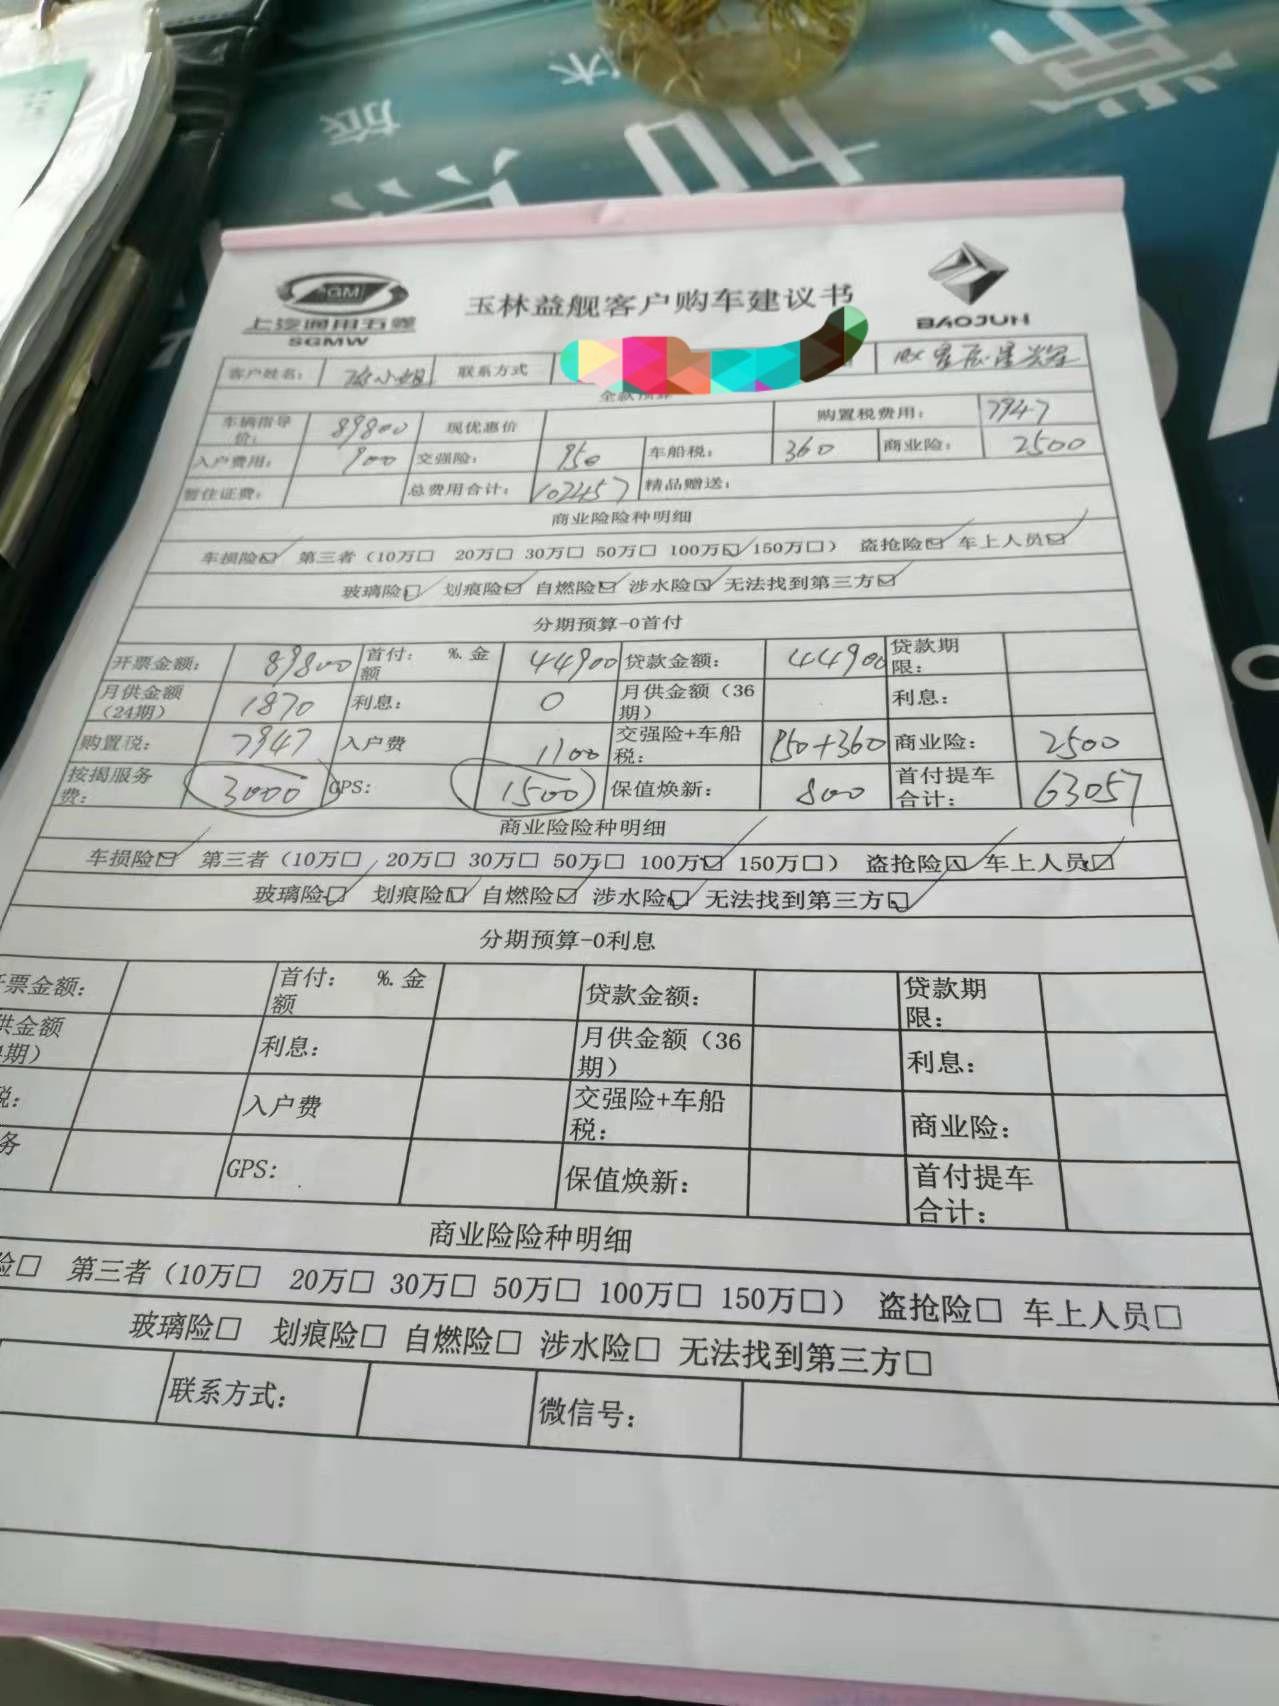 SGM
上汽通用五菱
SGMW
玉林益舰客户购车建议书
BAOJUN
客户姓名: 小姐 联系方式 星辰星耀
全款预算
车辆指导价: 89800 现优惠价 购置税费用: 7947
入户费用: 900 交强险: 950 车船税: 360 商业险: 2500
暂住证费: 总费用合计: 102457 精品赠送:
商业险险种明细
车损险☑ 第三者（10万□ 20万□ 30万□ 50万□ 100万☑ 150万□） 盗抢险☑ 车上人员☑
玻璃险☑ 划痕险☑ 自燃险☑ 涉水险☑ 无法找到第三方☑
分期预算-0首付
开票金额: 89800 首付: %.金额 44900 贷款金额: 44900 贷款期限:
月供金额（24期） 1870 利息: 0 月供金额（36期） 利息:
购置税: 7947 入户费 1100 交强险+车船税: 950+360 商业险: 2500
按揭服务费: 3000 GPS: 1500 保值焕新: 800 首付提车合计: 63057
商业险险种明细
车损险☑ 第三者（10万□ 20万□ 30万□ 50万□ 100万☑ 150万□） 盗抢险☑ 车上人员☑
玻璃险☑ 划痕险☑ 自燃险☑ 涉水险☑ 无法找到第三方☑
分期预算-0利息
票金额: 首付: %.金额 贷款金额: 贷款期限:
供金额 期） 利息: 月供金额（36期） 利息:
税: 入户费 交强险+车船税: 商业险:
务 GPS: 保值焕新: 首付提车合计:
商业险险种明细
险□ 第三者（10万□ 20万□ 30万□ 50万□ 100万□ 150万□） 盗抢险□ 车上人员□
玻璃险□ 划痕险□ 自燃险□ 涉水险□ 无法找到第三方□
联系方式: 微信号: